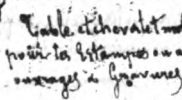 Table et chevalet mo
pour les Estampes ou a
ouvrages à Gravures